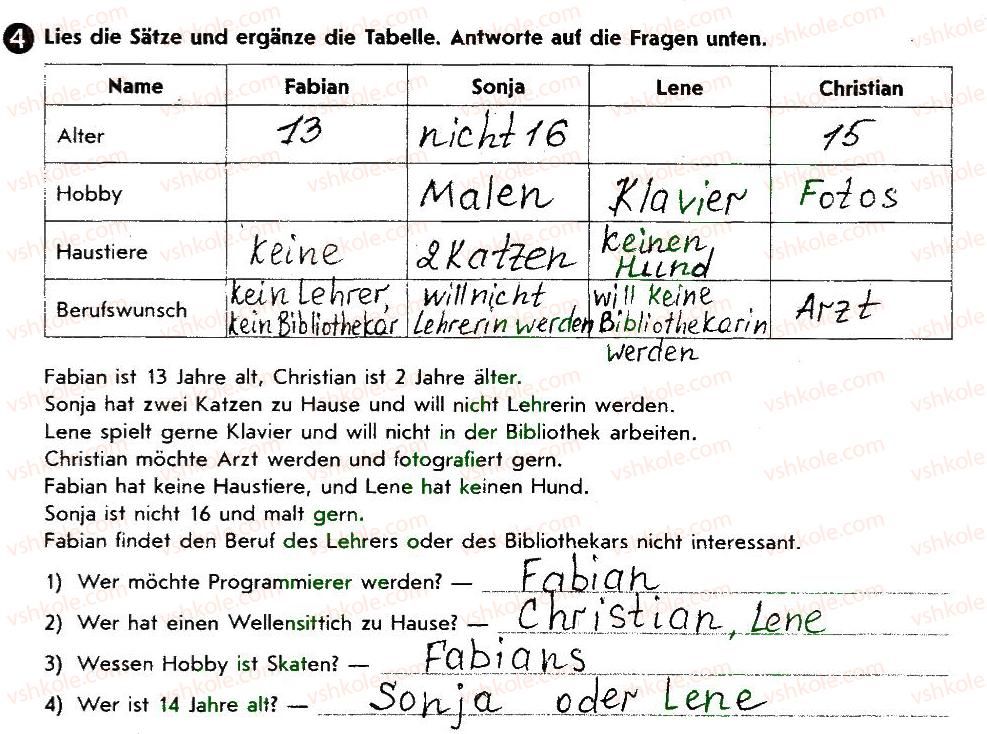 4 Lies die Sätze und ergänze die Tabelle. Antworte auf die Fragen unten.
Name Fabian Sonja Lene Christian
Alter 13 nicht 16 15
Hobby Malen Klavier Fotos
Haustiere keine 2 Katzen keinen Hund
Berufswunsch kein Lehrer, kein Bibliothekar will nicht Lehrerin werden will keine Bibliothekarin werden Arzt
Fabian ist 13 Jahre alt, Christian ist 2 Jahre älter.
Sonja hat zwei Katzen zu Hause und will nicht Lehrerin werden.
Lene spielt gerne Klavier und will nicht in der Bibliothek arbeiten.
Christian möchte Arzt werden und fotografiert gern.
Fabian hat keine Haustiere, und Lene hat keinen Hund.
Sonja ist nicht 16 und malt gern.
Fabian findet den Beruf des Lehrers oder des Bibliothekars nicht interessant.
1) Wer möchte Programmierer werden? — Fabian
2) Wer hat einen Wellensittich zu Hause? — Christian, Lene
3) Wessen Hobby ist Skaten? — Fabians
4) Wer ist 14 Jahre alt? — Sonja oder Lene